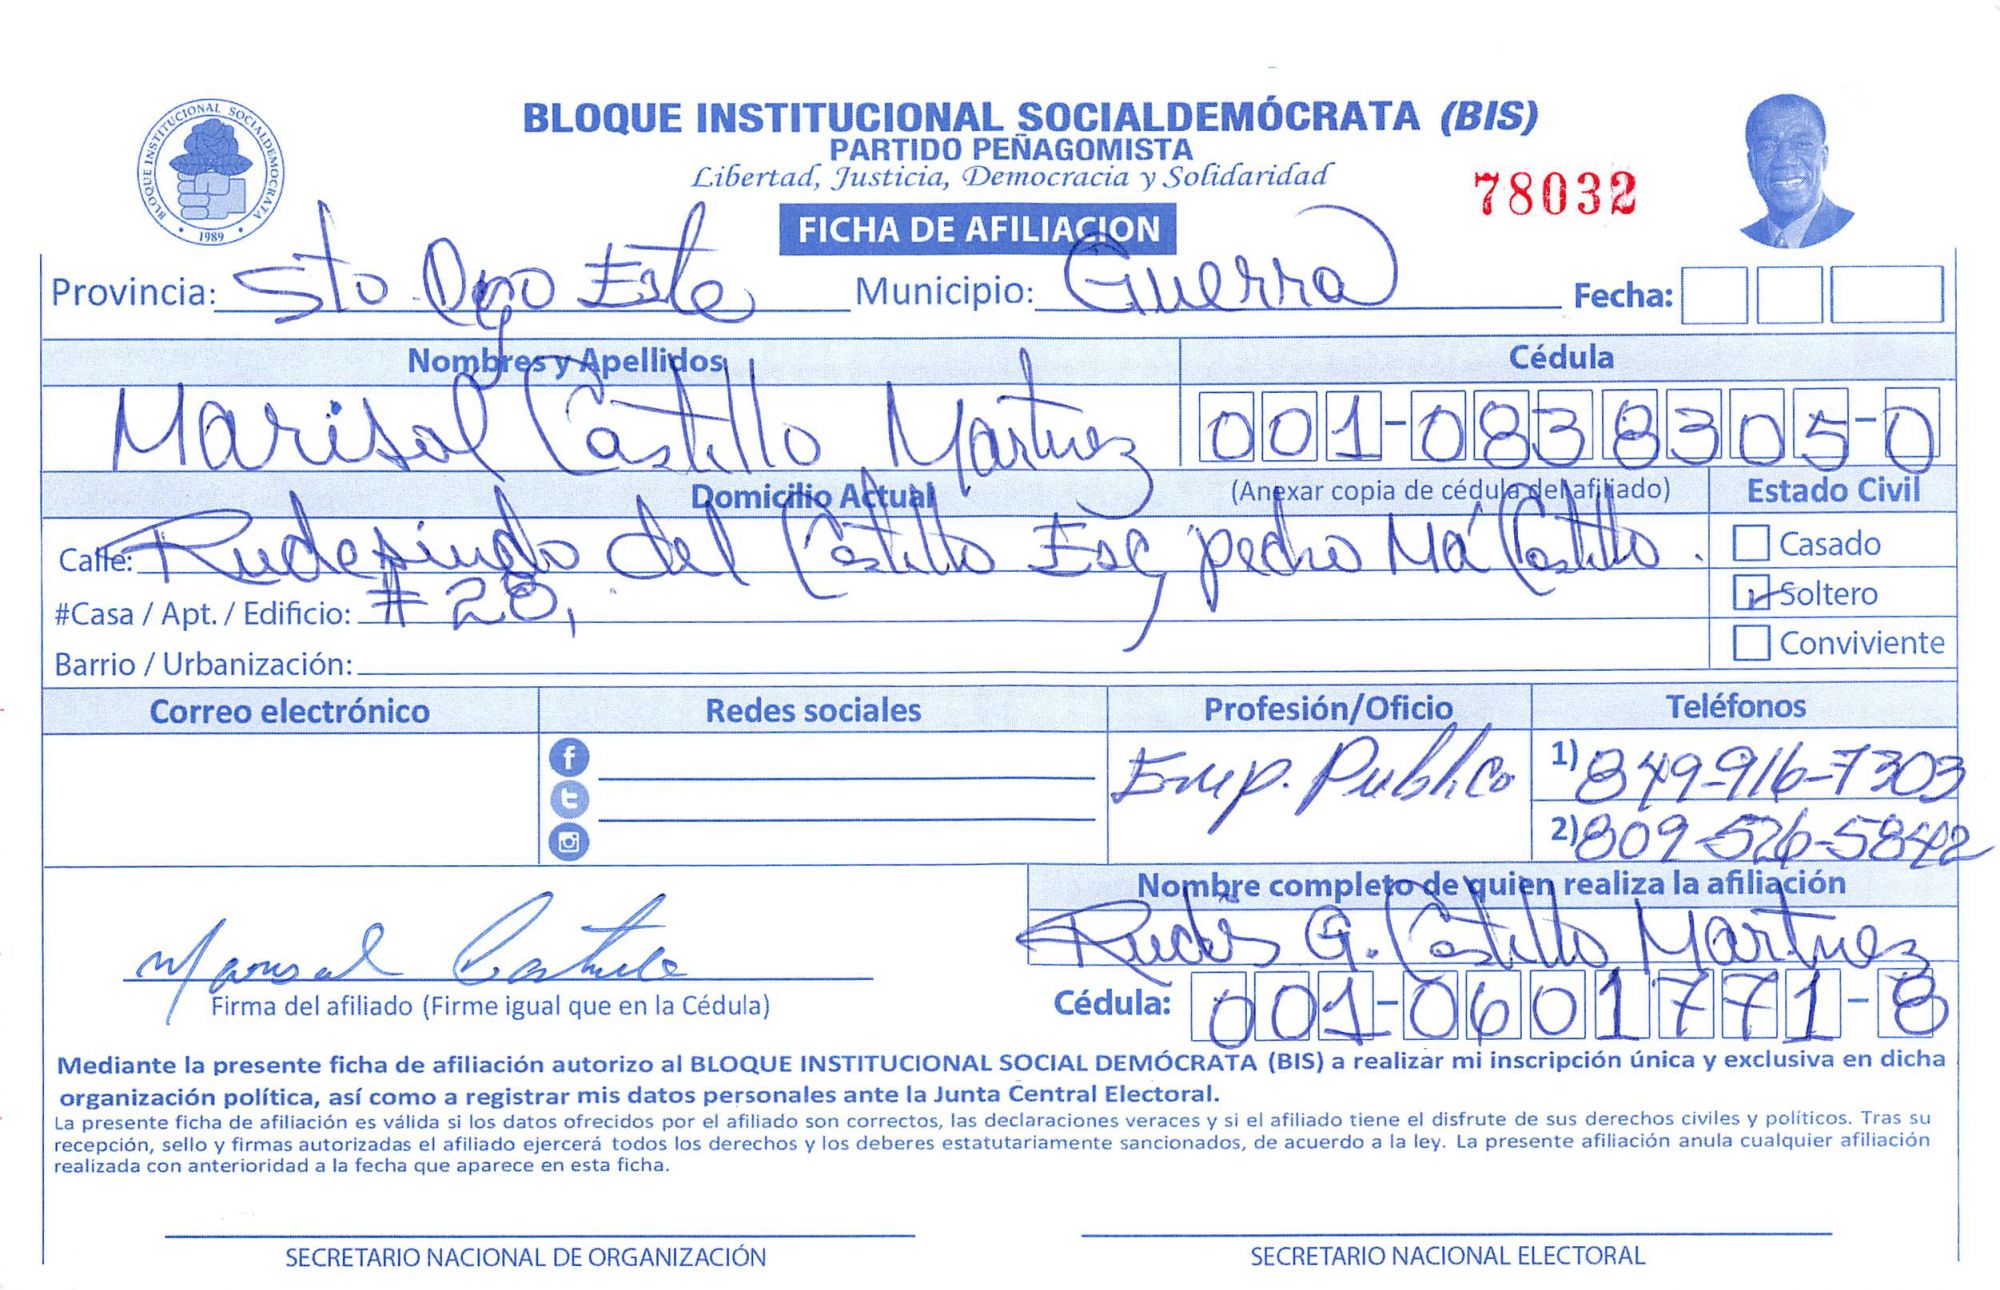 BLOQUE INSTITUCIONAL SOCIALDEMOCRATA 1989
BLOQUE INSTITUCIONAL SOCIALDEMÓCRATA (BIS)
PARTIDO PEÑAGOMISTA
Libertad, Justicia, Democracia y Solidaridad
78032
FICHA DE AFILIACION
Provincia: Sto Dgo Este Municipio: Guerra Fecha:
Nombres y Apellidos Cédula
Marisol Castillo Martinez 001-0838305-0
Domicilio Actual (Anexar copia de cédula del afiliado) Estado Civil
Calle: Rudesindo del Castillo Esq, pedro Má Castillo. Casado
#Casa / Apt. / Edificio: # 28, Soltero
Barrio / Urbanización: Conviviente
Correo electrónico Redes sociales Profesión/Oficio Teléfonos
Emp. Publico 1) 849-916-7303
2) 809-526-5842
Nombre completo de quien realiza la afiliación
Rudis G. Castillo Martinez
Marisol Castillo
Firma del afiliado (Firme igual que en la Cédula) Cédula: 001-0601771-8
Mediante la presente ficha de afiliación autorizo al BLOQUE INSTITUCIONAL SOCIAL DEMÓCRATA (BIS) a realizar mi inscripción única y exclusiva en dicha
organización política, así como a registrar mis datos personales ante la Junta Central Electoral.
La presente ficha de afiliación es válida si los datos ofrecidos por el afiliado son correctos, las declaraciones veraces y si el afiliado tiene el disfrute de sus derechos civiles y políticos. Tras su
recepción, sello y firmas autorizadas el afiliado ejercerá todos los derechos y los deberes estatutariamente sancionados, de acuerdo a la ley. La presente afiliación anula cualquier afiliación
realizada con anterioridad a la fecha que aparece en esta ficha.
SECRETARIO NACIONAL DE ORGANIZACIÓN SECRETARIO NACIONAL ELECTORAL